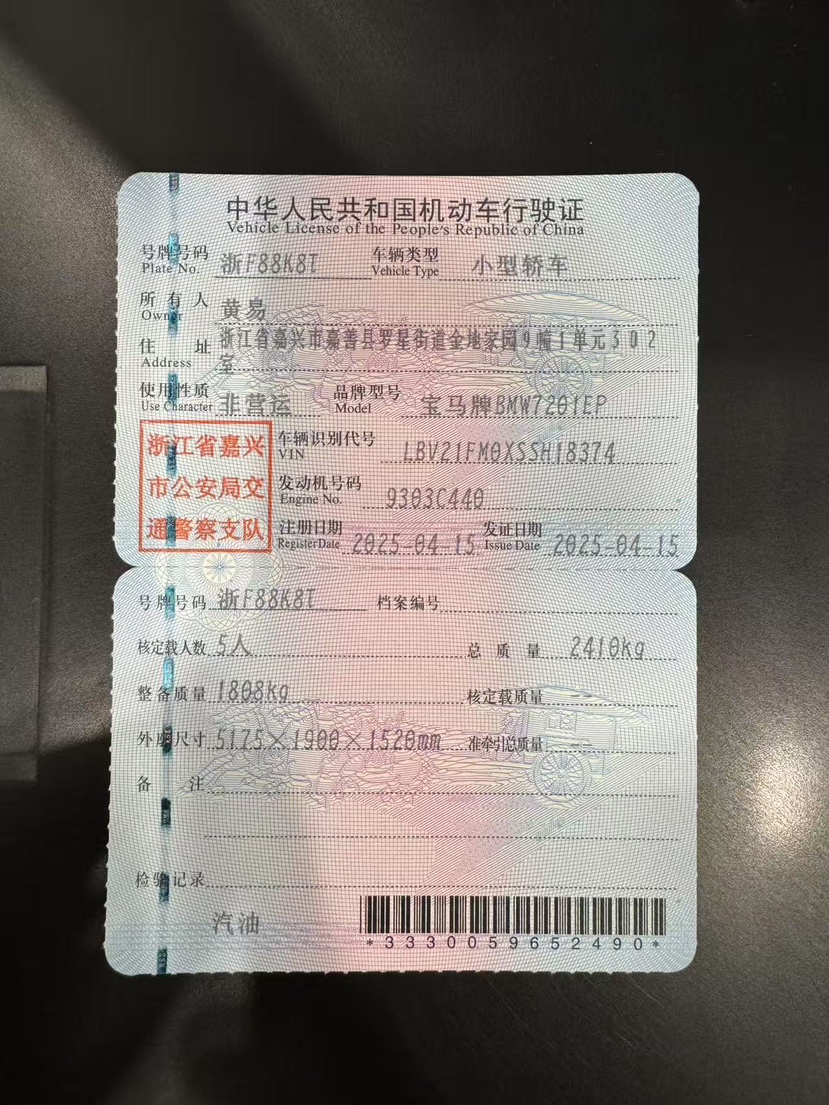 中华人民共和国机动车行驶证
Vehicle License of the People's Republic of China
号牌号码 浙F88K8T 车辆类型 小型轿车
Plate No. Vehicle Type
所有人 黄易
Owner
住址 浙江省嘉兴市嘉善县罗星街道金地家园9幢1单元302
Address 室
使用性质 非营运 品牌型号 宝马牌BMW7201EP
Use Character Model
浙江省嘉兴 车辆识别代号 LBV21FM0XSSH18374
VIN
市公安局交 发动机号码 9303C440
Engine No.
通警察支队 注册日期 2025-04-15 发证日期 2025-04-15
Register Date Issue Date
号牌号码 浙F88K8T 档案编号
核定载人数 5人 总质量 2410kg
整备质量 1808kg 核定载质量
外廓尺寸 5175×1900×1520mm 准牵引总质量
备注
检验记录
汽油
*3330059652490*